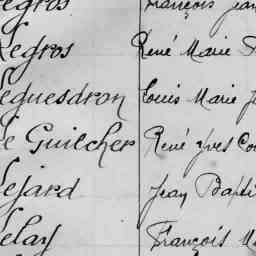 egros François Jean
Legros René Marie
Leguesdron Louis Marie
Le Guilcher René Yves
Lejard Jean Bapti
Lelay François M